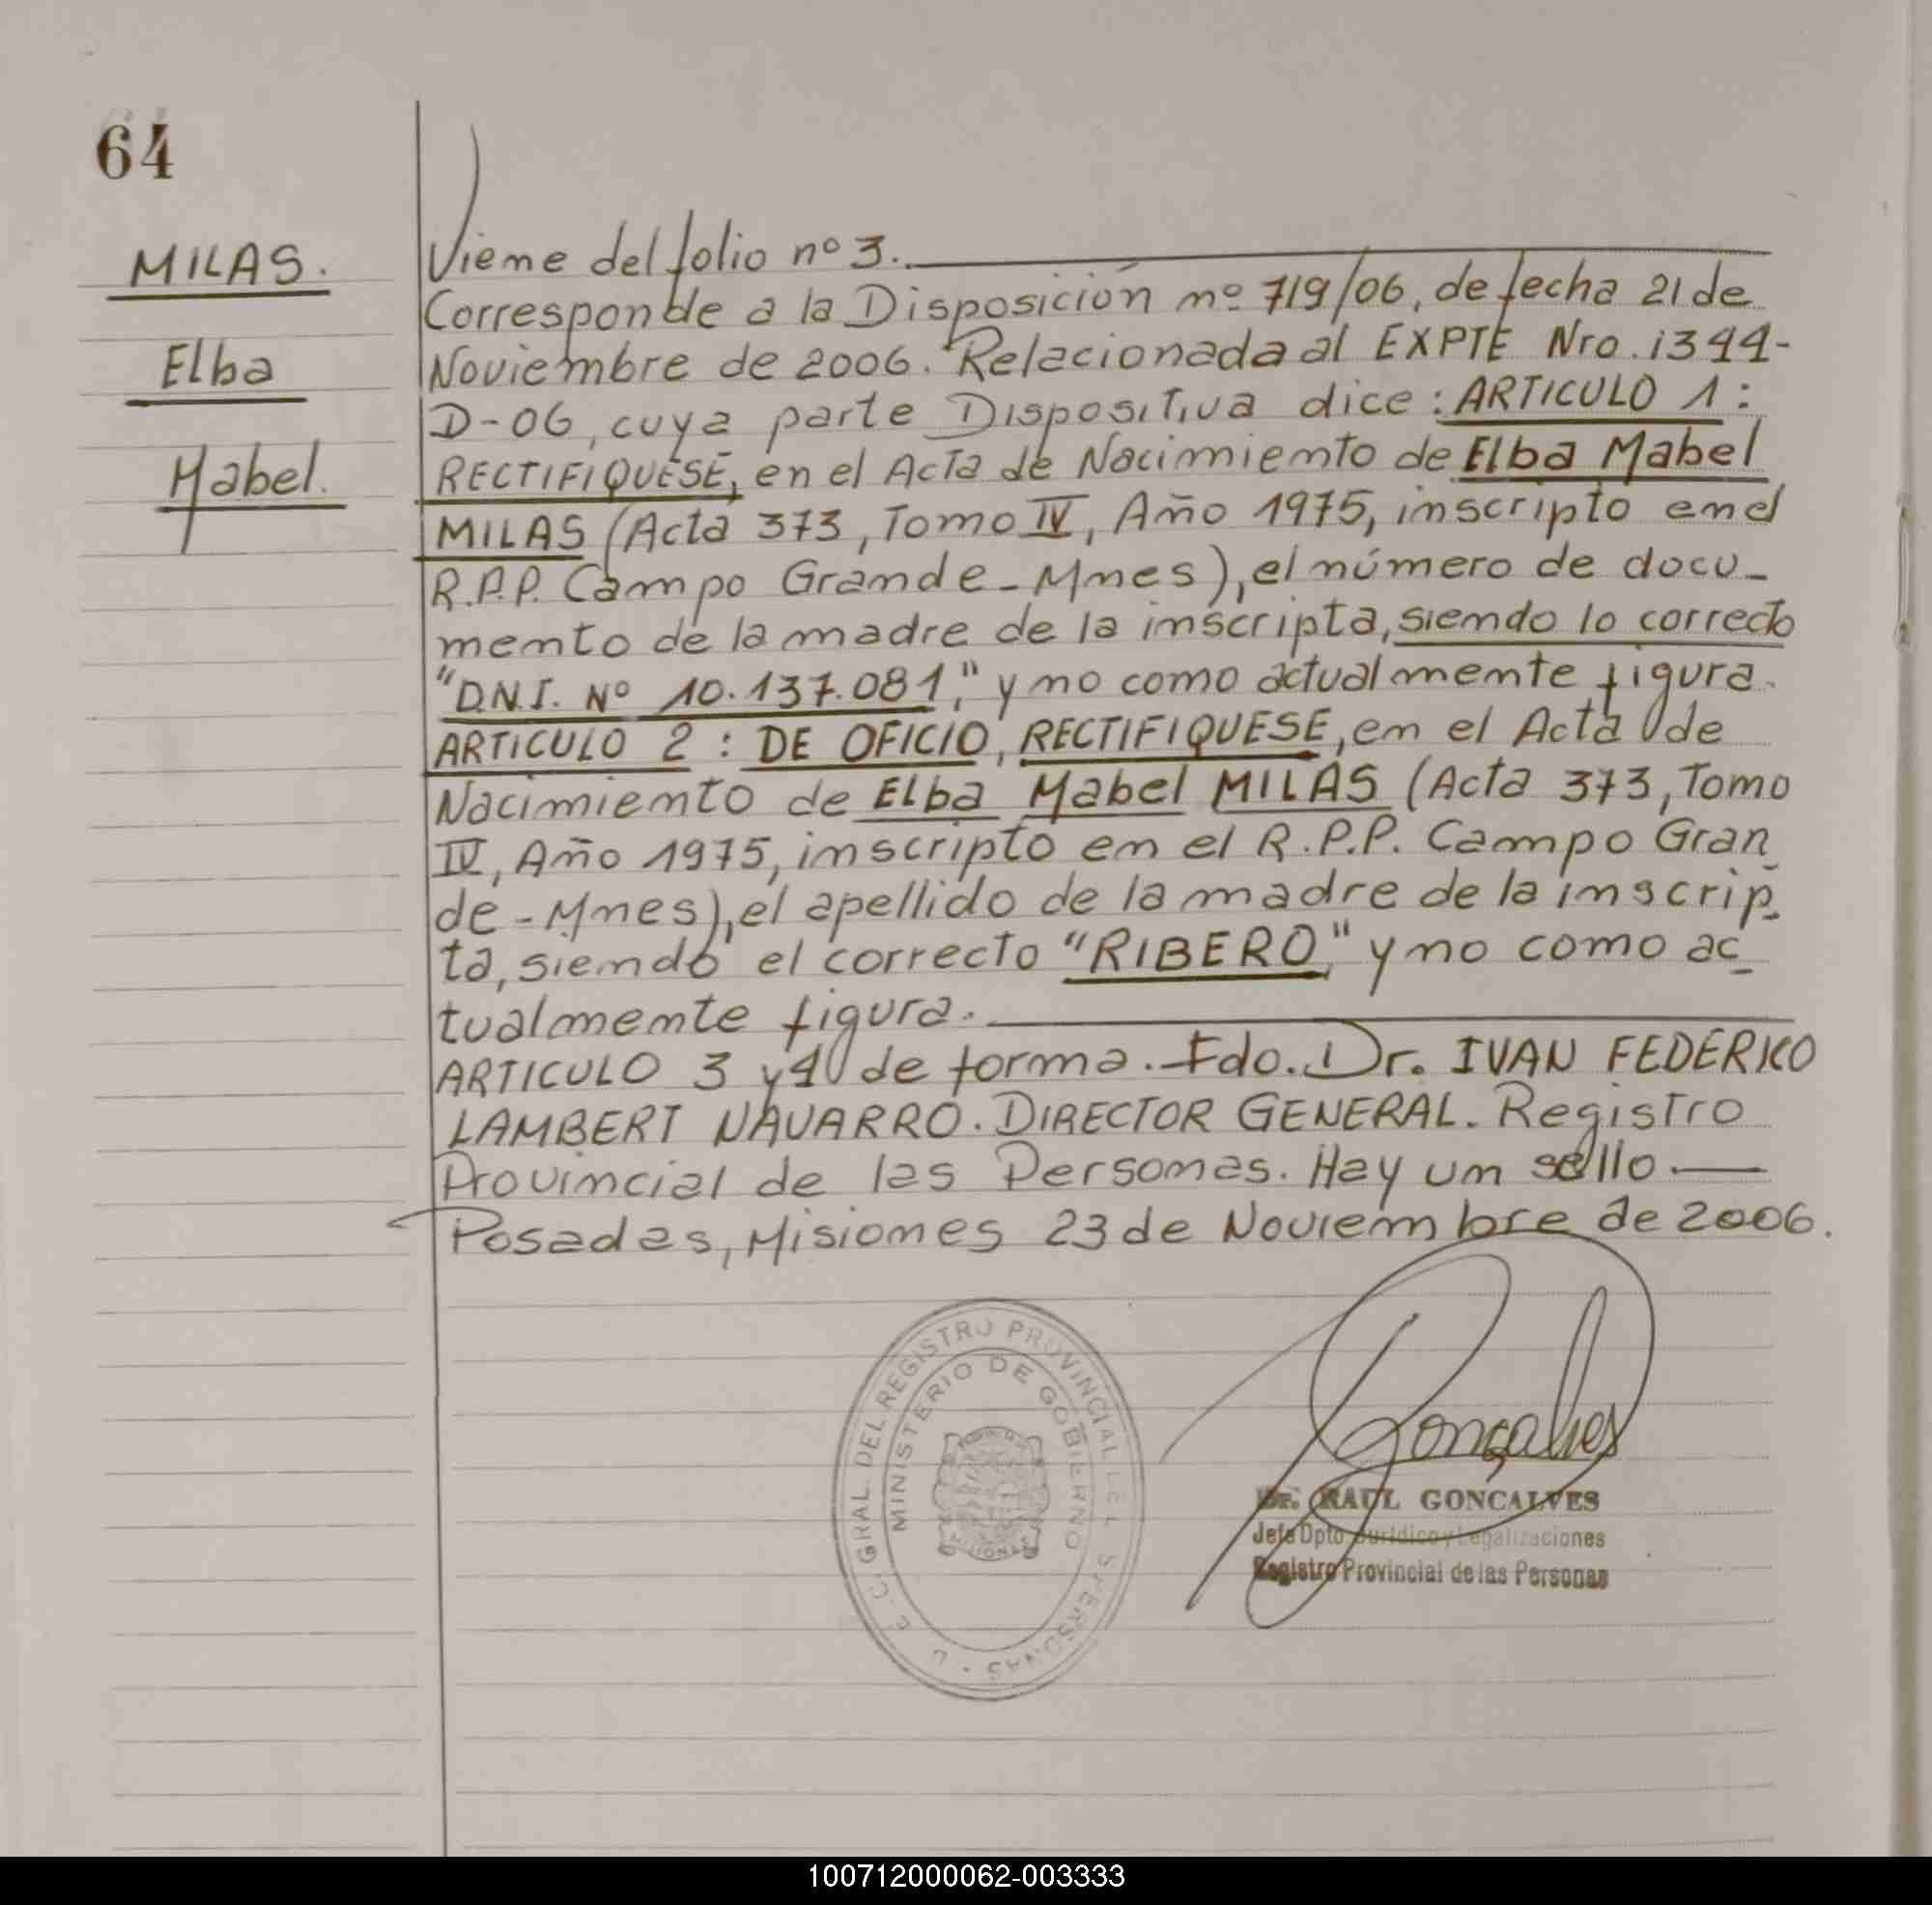 64
MILAS.
Elba
Mabel.
Viene del folio nº 3.
Corresponde a la Disposición nº 719/06, de fecha 21 de
Noviembre de 2006. Relacionada al EXPTE Nro. 1344-
D-06, cuya parte Dispositiva dice: ARTICULO 1:
RECTIFIQUESE, en el Acta de Nacimiento de Elba Mabel
MILAS (Acta 373, Tomo IV, Año 1975, inscripto en el
R.P.P. Campo Grande-Mnes), el número de docu-
mento de la madre de la inscripta, siendo lo correcto
"D.N.I. Nº 10.137.081," y no como actualmente figura.
ARTICULO 2: DE OFICIO, RECTIFIQUESE, en el Acta de
Nacimiento de Elba Mabel MILAS (Acta 373, Tomo
IV, Año 1975, inscripto en el R.P.P. Campo Gran
de-Mnes), el apellido de la madre de la inscrip-
ta, siendo el correcto "RIBERO," y no como ac-
tualmente figura.
ARTICULO 3 y 4 de forma. Fdo. Dr. IVAN FEDERICO
LAMBERT NAVARRO. DIRECTOR GENERAL. Registro
Provincial de las Personas. Hay un sello.
Posadas, Misiones 23 de Noviembre de 2006.
GRAL. DEL REGISTRO PROVINCIAL DE LAS PERSONAS
MINISTERIO DE GOBIERNO
MISIONES
Gonçalves
Dr. RAUL GONCALVES
Jefe Dpto Juridico y Legalizaciones
Registro Provincial de las Personas
100712000062-003333